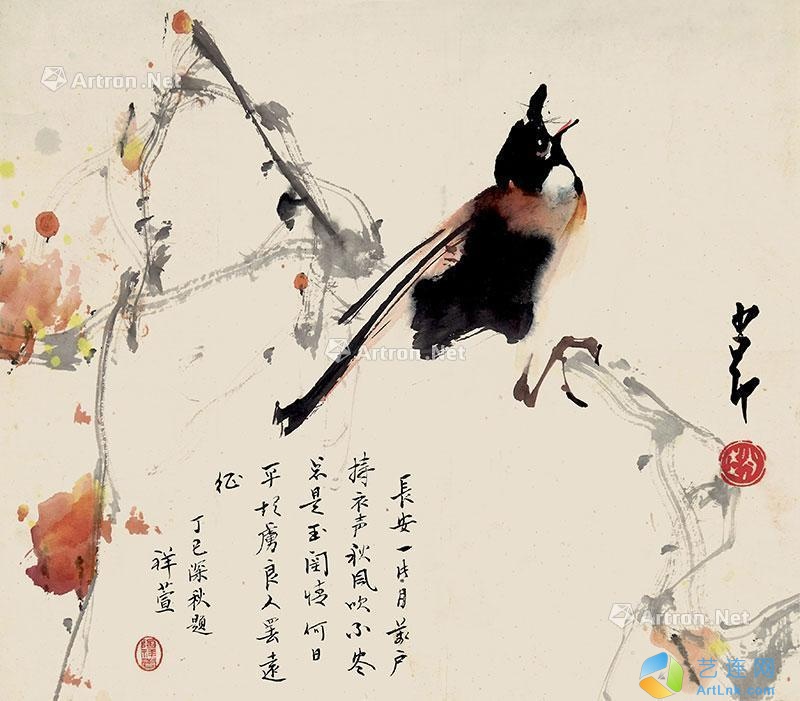 少昂
長安一片月萬户
擣衣声秋風吹不尽
总是玉関情何日
平胡虜良人罷遠
征
丁巳深秋題
祥萱
Artron.Net
Artron.Net
Artron.Net
Artron.Net
艺连网
ArtLnk.com